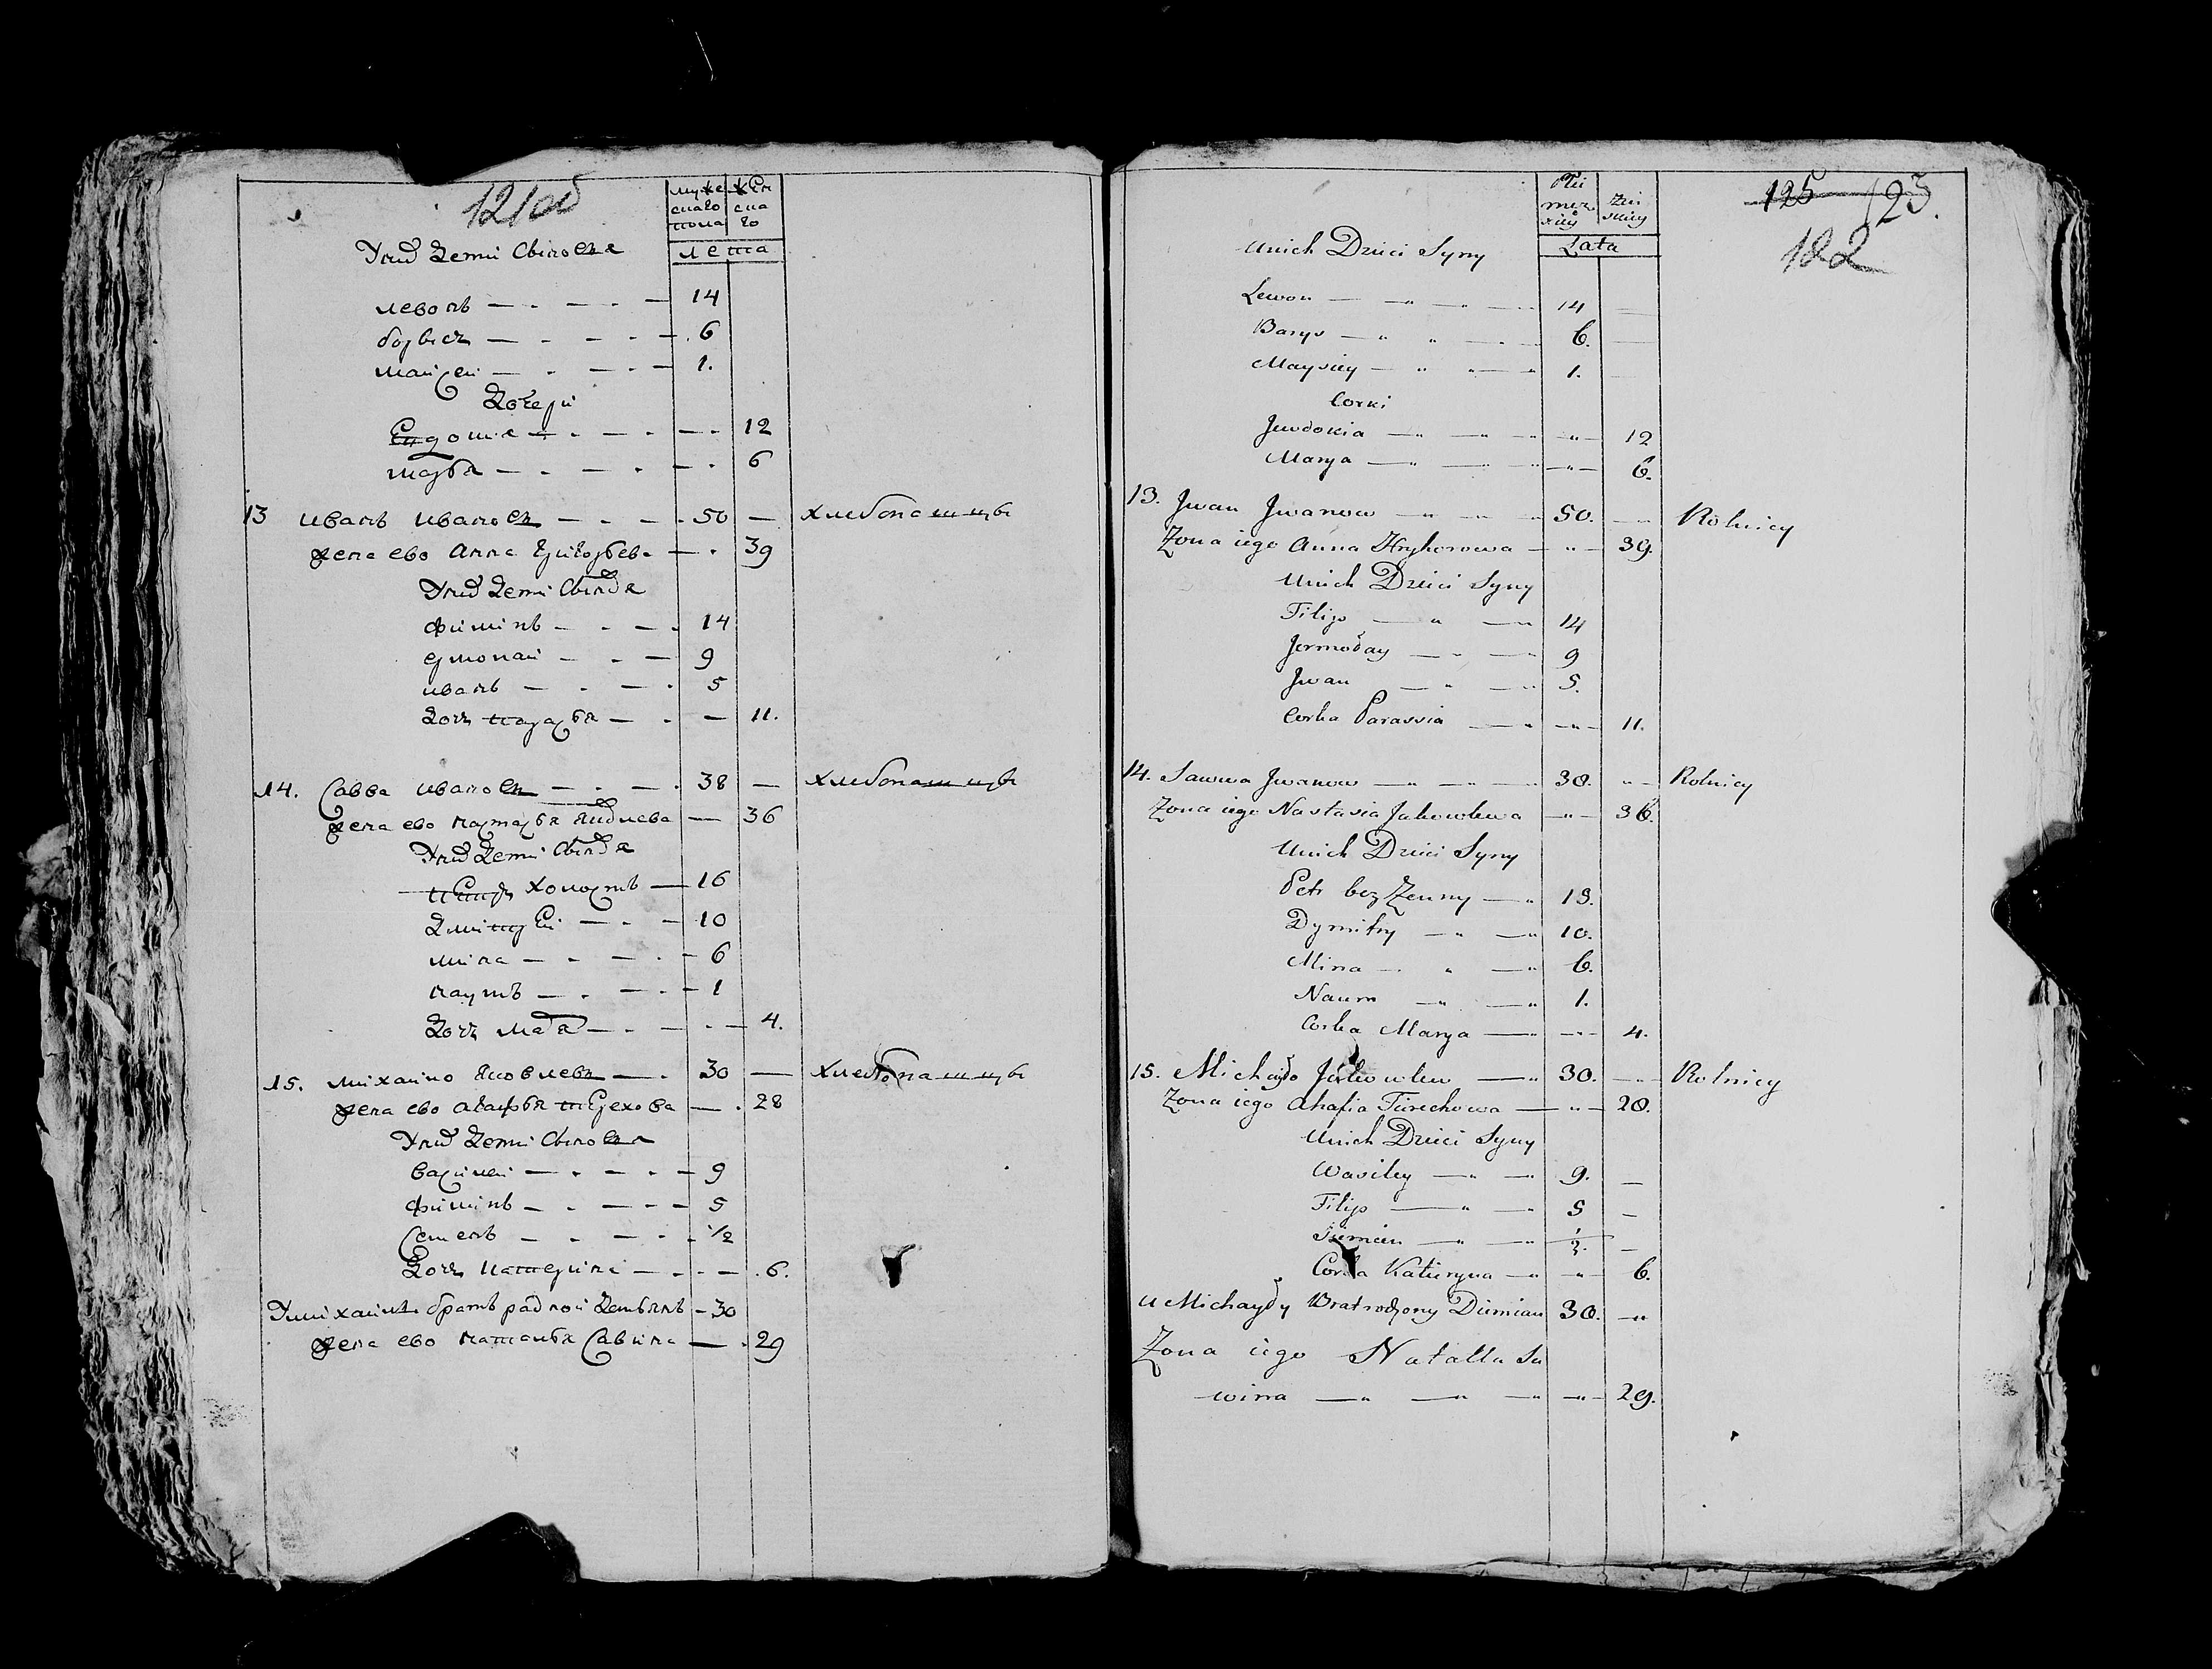 121об
мужескаго пола
женскаго
лета
У них дети Сыновя
левонъ — 14
борыс — 6
майсей — 1.
Дочери
Евдокия — 12
марья — 6
13 иванъ иванов — 50 — хлебопашцы
жена ево Анна григорьева — 39
У них дети Сыновя
филипъ — 14
ермолай — 9
иванъ — 5
Доч парасья — 11.
14. Савва иванов — 38 — хлебопашцы
жена ево настасья яковлева — 36
У них дети Сыновя
петр холостъ — 16
Дмитрей — 10
мина — 6
наумъ — 1
Доч марья — 4.
15. михайло яковлевъ — 30 — хлебопашцы
жена ево агафья терехова — 28
У них дети Сыновя
василей — 9
филипъ — 5
семенъ — 1/2
Доч катерина — 6.
У михайлы братъ родной Демьянъ — 30
жена ево наталья Савина — 29
125 123.
122
Płci męzkiej
żeńskiey
Lata
u nich Dzieci Syny
Lewon — 14
Barys — 6.
Maysiey — 1.
Corki
Jewdokia — 12
Marya — 6.
13. Jwan Jwanow — 50. — Rolnicy
Zona iego Anna Hryhorowa — 39.
u nich Dzieci Syny
Filip — 14
Jermołay — 9
Jwan — 5.
Corka Parassia — 11.
14. Sawwa Jwanow — 38. — Rolnicy
Zona iego Nastasia Jakowlewa — 36.
u nich Dzieci Syny
Petr bez Zenny — 13.
Dymitry — 10.
Mina — 6.
Naum — 1.
Corka Marya — 4.
15. Michayło Jakowlew — 30. — Rolnicy
Zona iego Ahafia Tierechowa — 28.
u nich Dzieci Syny
Wasiley — 9.
Filip — 5
Siemien — 1/2.
Corka Katieryna — 6.
u Michayły Brat rodzony Diemian 30.
Zona iego Natalla Sa
wina — 29.